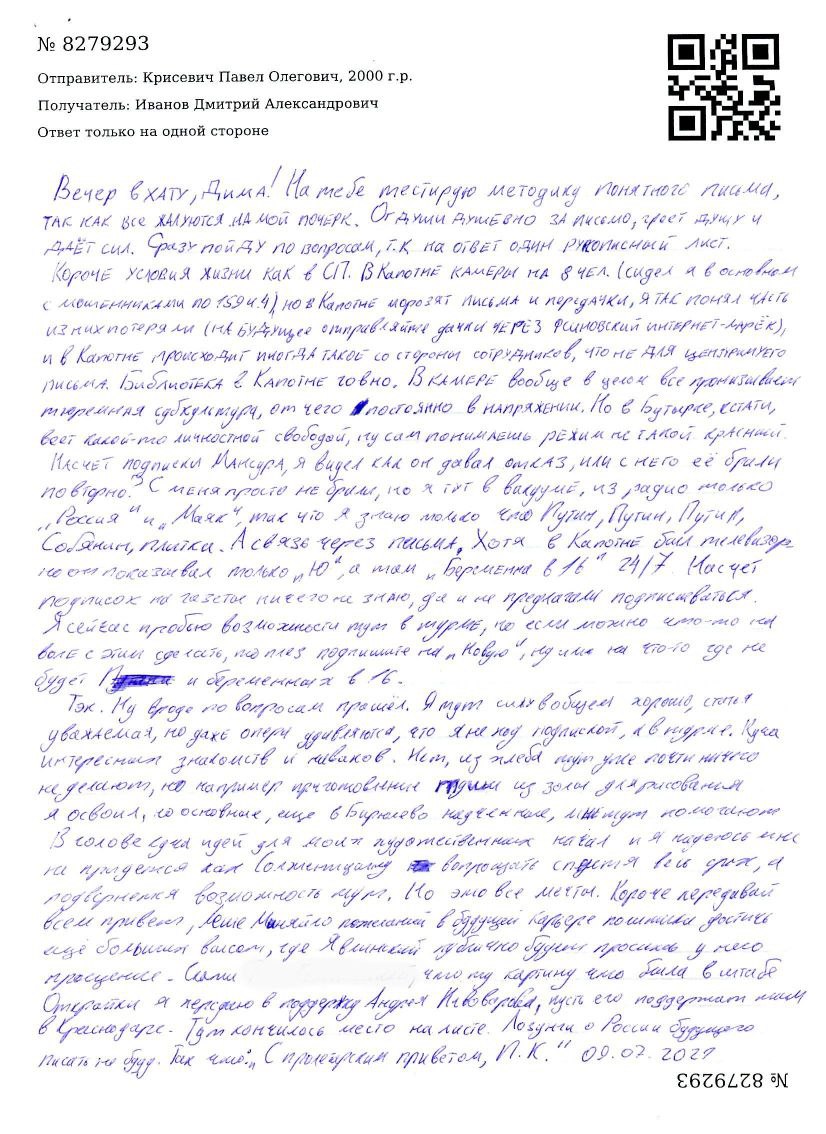 № 8279293
Отправитель: Крисевич Павел Олегович, 2000 г.р.
Получатель: Иванов Дмитрий Александрович
Ответ только на одной стороне
Вечер в хату, Дима! На тебе тестирую методику понятного письма,
так как все жалуются на мой почерк. От души душевно за письмо, греет душу и
даёт сил. Сразу пойду по вопросам, т.к на ответ один рукописный лист.
Короче условия жизни как в СП. В Капотне камеры на 8 чел. (сидел я в основном
с мошенниками по 159 ч.4), но в Капотне морозят письма и передачки, я так понял часть
из них потеряли (на будущее отправляйте дачки через ФСИНовский интернет-ларёк),
и в Капотне происходит иногда такое со стороны сотрудников, что не для цензурируемого
письма. Библиотека в Капотне говно. В камере вообще в целом все пронизывает
тюремная субкультура, от чего постоянно в напряжении. Но в Бутырке, кстати,
веет какой-то личностной свободой, ну сам понимаешь режим не такой красный.
Насчёт подписки Мансура, я видел как он давал отказ, или с него её брали
повторно? С меня просто не брали, но я тут в вакууме, из радио только
„Россия" и „Маяк", так что я знаю только что Путин, Путин, Путин,
Собянин, плитка. А связь через письма. Хотя в Капотне был телевизор
но он показывал только „Ю", а там „Беременна в 16" 24/7. Насчёт
подписок на газеты ничего не знаю, да и не предлагали подписываться.
Я сейчас пробью возможности тут в тюрьме, но если можно что-то на
воле с этим сделать, то плез подпишите на „Новую", ну или на что-то где не
будет и беременных в 16.
Тэк. Ну вроде по вопросам прошёл. Я тут сижу в общем хорошо, статья
уважаемая, но даже опера удивляются, что я не под подпиской, а в тюрьме. Куча
интересных знакомств и навыков. Нет, из хлеба тут уже почти ничего
не делают, но например приготовление из золы для рисования
я освоил, но основные, еще в Бирюлево наученные, мне тут помогают
В голове куча идей для моих художественных начал и я надеюсь мне
не придется как Солженицыну вопрощать спустя весь срок, а
подвернется возможность тут. Но это все мечты. Короче передавай
всем привет, Леше Миняйло пожеланий в будущей карьере политика достичь
ещё больших высот, где Явлинский публично будет просить у него
прощение. Скажи , что ту картину что была в штабе
Открытки я передаю в поддержку Андрея Пивоварова, пусть его поддержат там
в Краснодаре. Тут кончилось место на листе. Лозунги о России будущего
писать не буду. Так что: „С пролетарским приветом, П.К." 09.07.2021
№ 8279293